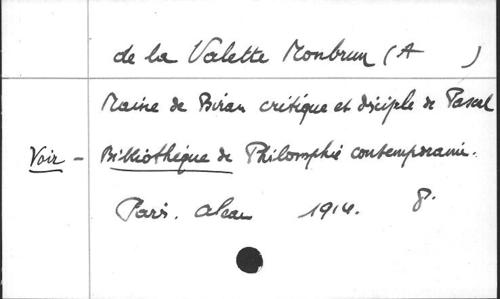 de la Valette Monbrun (A )
Maine de Biran critique et disciple de Pascal
Voir - Bibliothèque de Philosophie contemporaine.
Paris. Alcan 1914. 8.